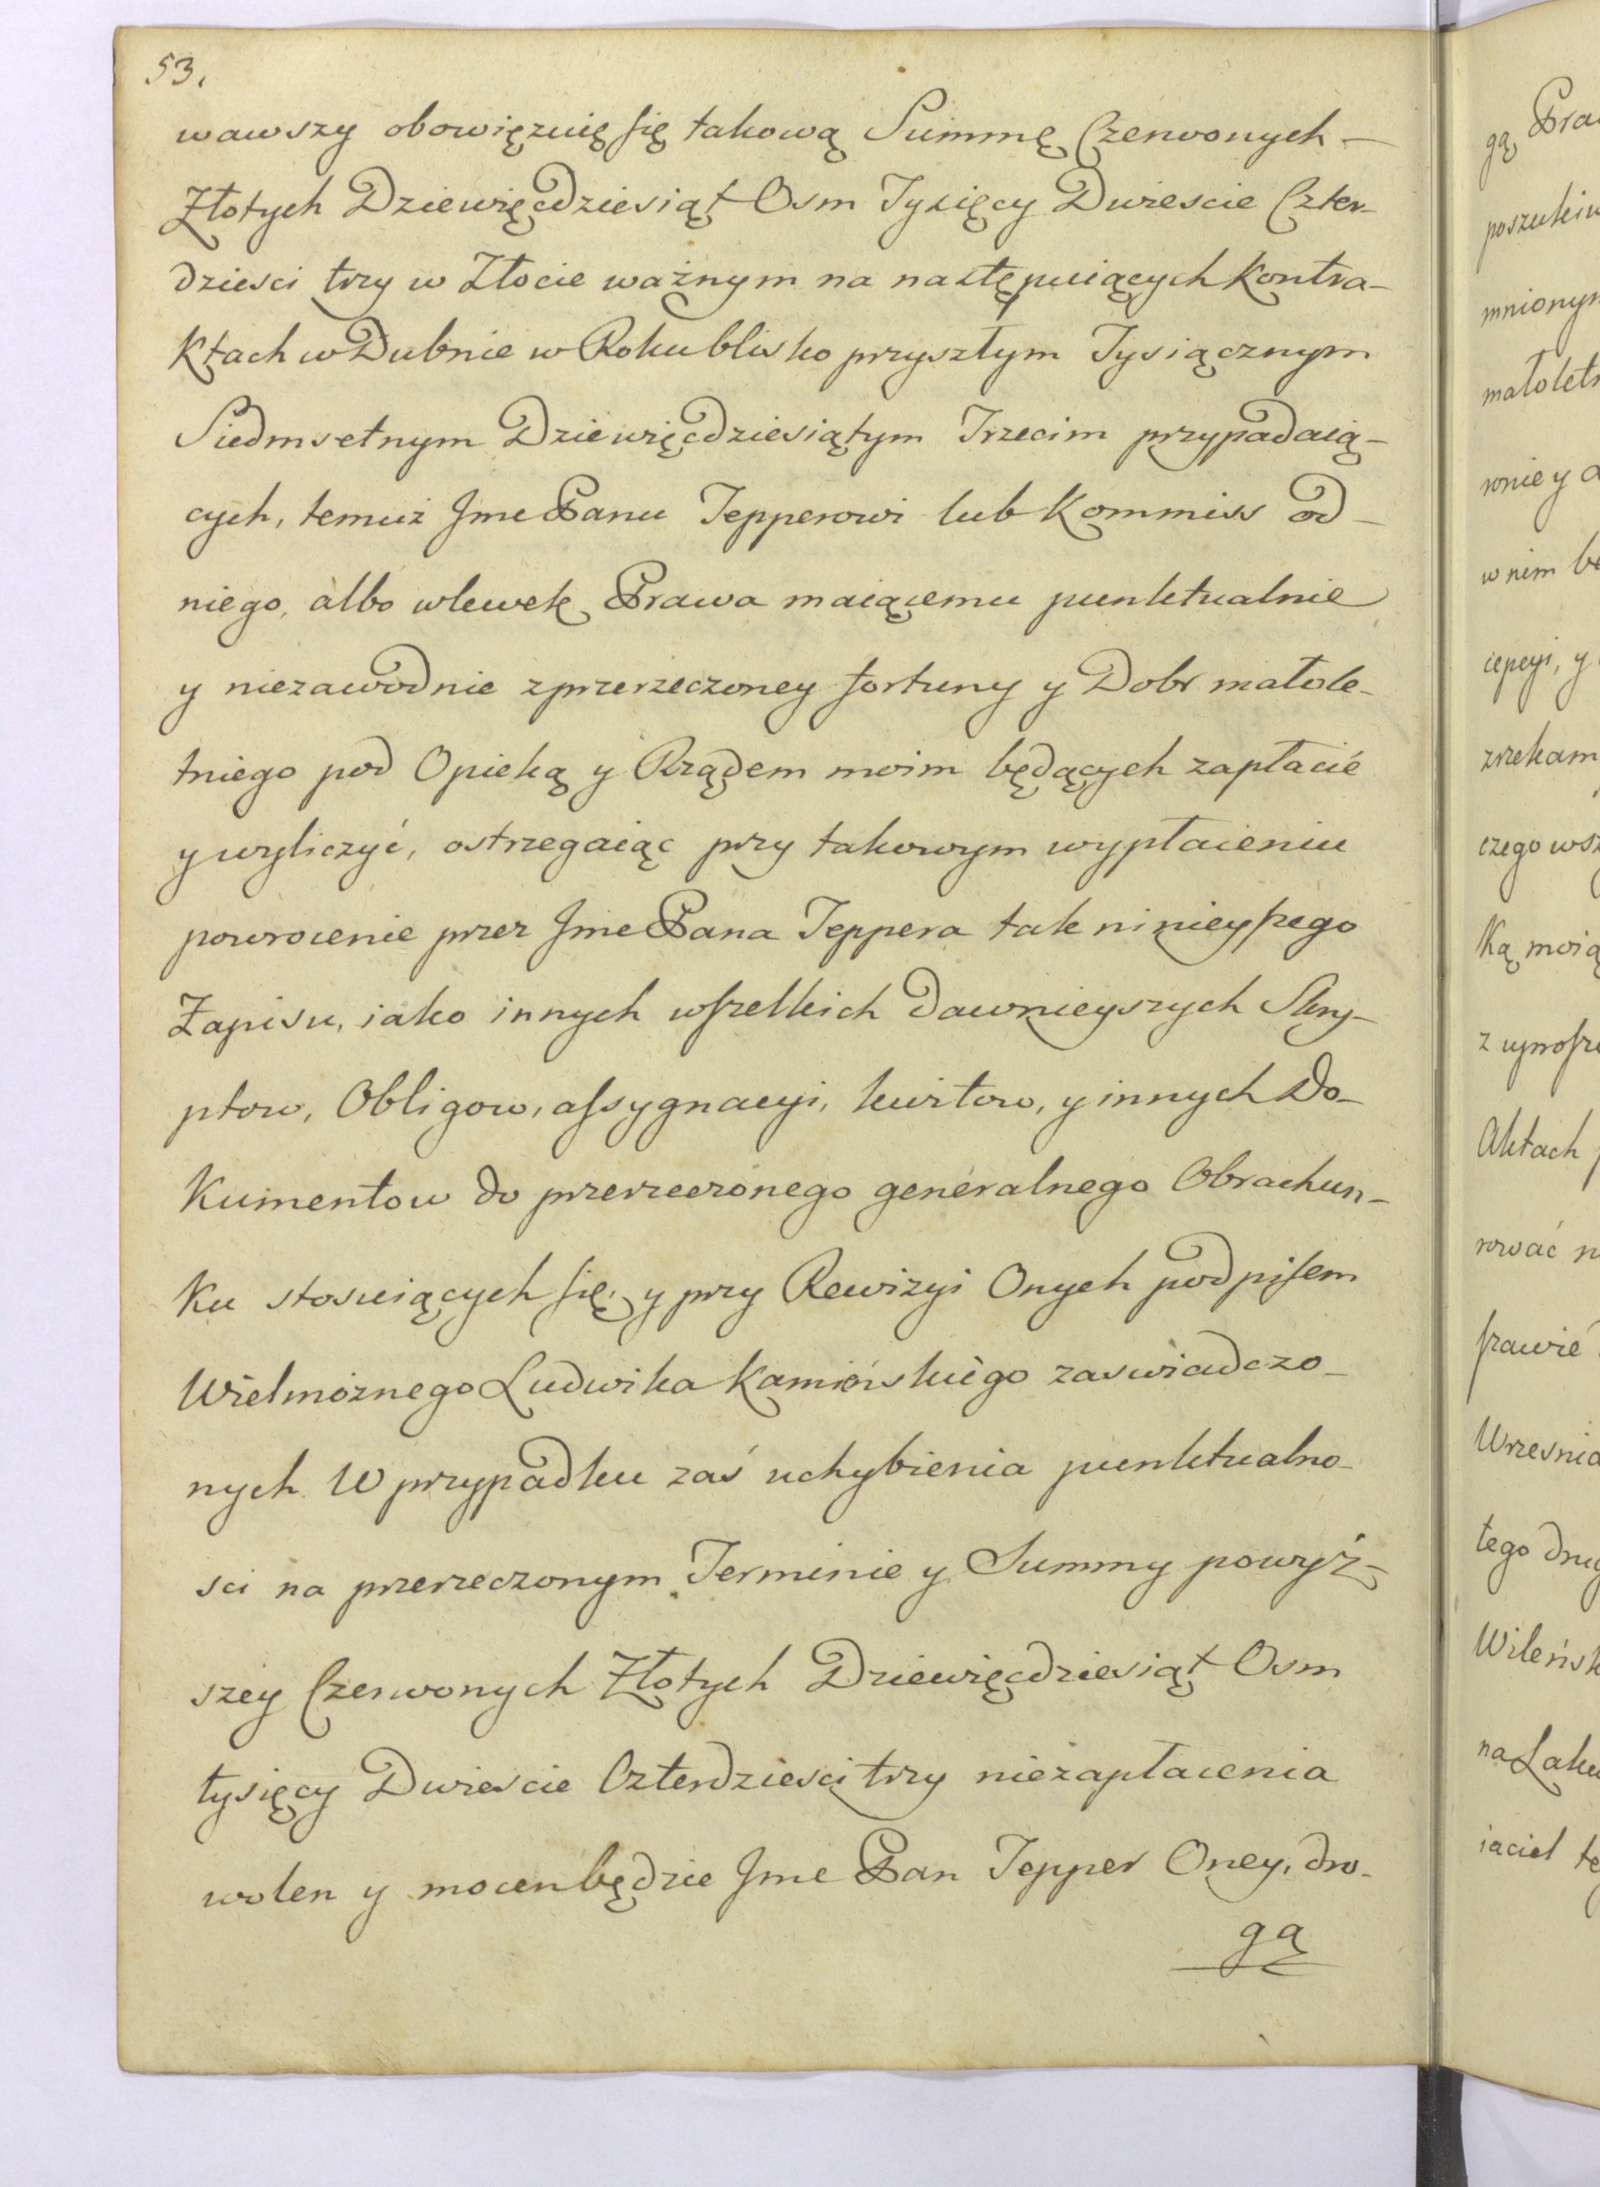 53.
wawszy obowięzuię się takową Summę Czerwonych –
Złotych Dziewięćdziesiąt Osm Tysięcy Dwieście Czter-
dziesci trzy w Złocie ważnym na następuiących Kontra-
Ktach w Dubnie w Roku blisko przyszłym Tysiącznym
Siedmsetnym Dziewięćdziesiątym Trzecim przypadaią-
cych, temuż Jme Panu Tepperowi lub Kommiss od –
niego, albo wlewek Prawa maiącemu punktualnie
y niezawodnie z przerzeczoney fortuny y Dobr małole-
tniego pod Opieką y Rządem moim będących zapłacić
y wyliczyć, ostrzegaiąc przy takowym wypłaceniu
powrocenie przez Jme Pana Teppera tak ninieyszego
Zapisu, iako innych wszelkich dawnieyszych Skry-
ptow, Obligow, assygnacyi, kwitow, y innych Do-
Kumentow do przerzeczonego generalnego Obrachun-
Ku stosuiących się, y przy Rewizyi Onych podpisem
Wielmożnego Ludwika Kamińskiego zaswiadczo-
nych. W przypadku zaś uchybienia punktualno-
sci na przerzeczonym Terminie y Summy powyż-
szey Czerwonych Złotych Dziewięćdziesiąt Osm
tysięcy Dwieście Czterdziesci trzy niezapłacenia
wolen y mocen będzie Jme Pan Tepper Oney, dro-
gą
gą Pra
poszukiw
mnionym
małoletn
ronie y
w nim be
cepcyi, y
zrzekam
czego wsz
Ką moią
Aktach
rować n
Wrzesnia
tego dru
Wileńsk
iaciel te